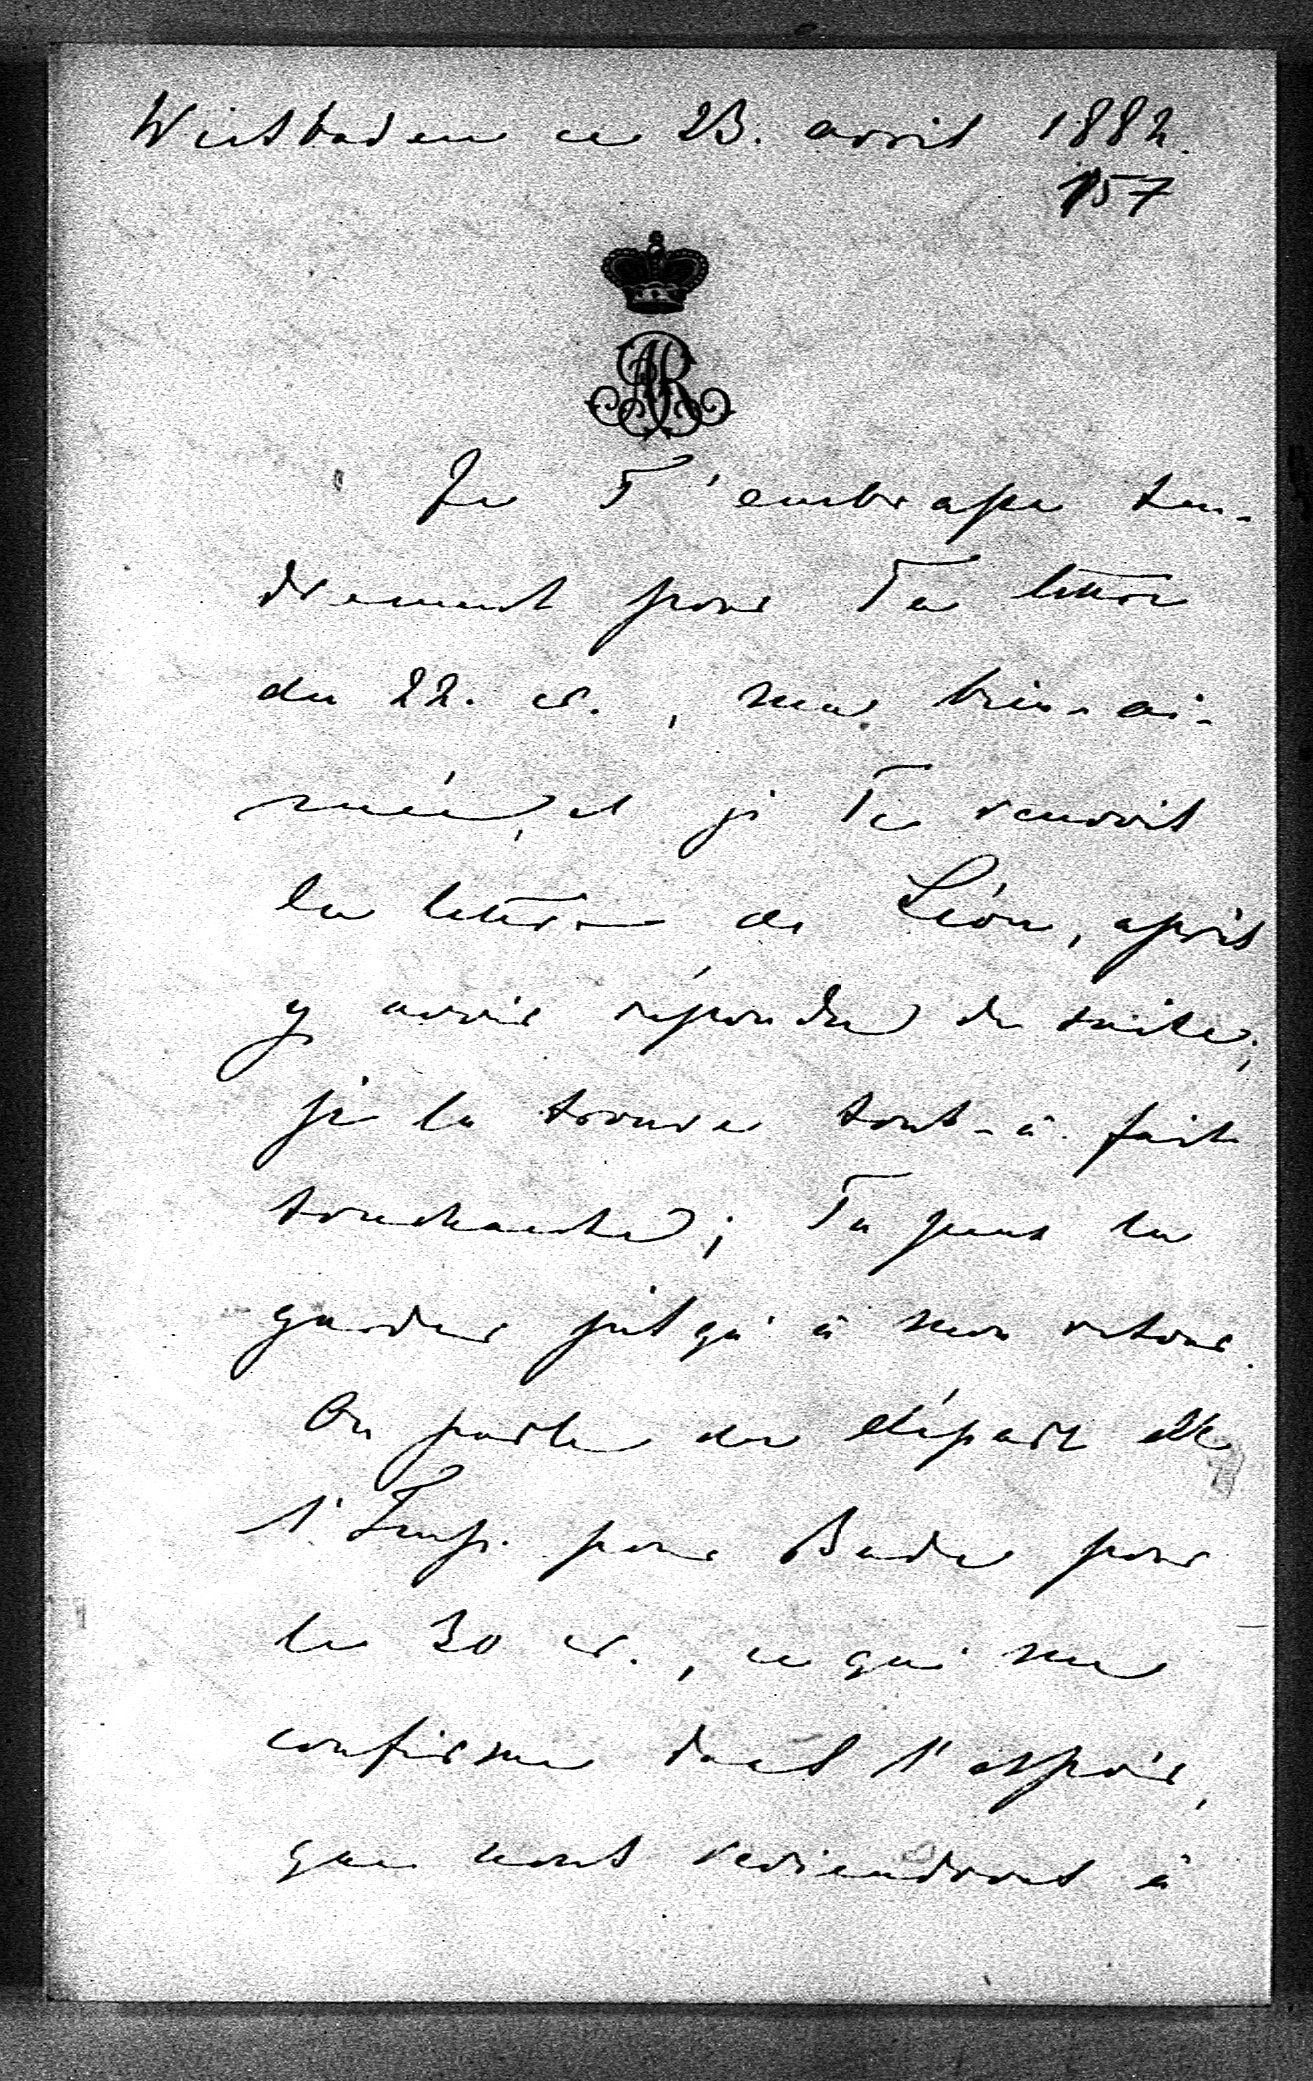 Wiesbaden ce 23. avril 1882.
157
AR
Je T'embrasse ten-
drement pour Ta lettre
du 22. cr., ma bien-ai-
mée, et je Te renvois
la lettre de Léon, après
y avoir répondu de suite;
je la trouve tout-à-fait
touchante; Tu peux la
garder jusqu'à mon retour.
On parle du départ de
l'Imp. pour Bade pour
le 30 cr., ce qui me
confirme dans l'espoir,
que nous reviendrons à